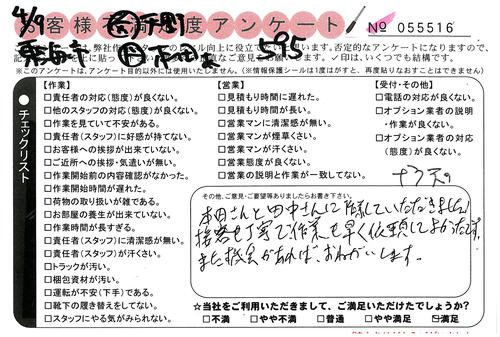 お客様不満足度アンケート
№ 055516
4/9
595
※このアンケートは、アンケート目的以外には使用いたしません。(※情報保護シールは1度はがすと、再度貼りなおすことはできません
チェックリスト
【作業】
□責任者の対応(態度)が良くない。
□他のスタッフの対応(態度)が良くない。
□作業を見ていて不安がある。
□責任者(スタッフ)に好感が持てない。
□お客様への挨拶が出来ていない。
□ご近所への挨拶・気遣いが無い。
□作業開始前の内容確認がなかった。
□作業開始時間が遅れた。
□荷物の取り扱いが雑である。
□お部屋の養生が出来ていない。
□作業時間が長すぎる。
□責任者(スタッフ)に清潔感が無い。
□責任者(スタッフ)が汗くさい。
□トラックが汚い。
□梱包資材が汚い。
□運転が不安(下手)である。
□靴下の履き替えをしてない。
□スタッフにやる気がみられない。
【営業】
□見積もり時間に遅れた。
□見積もり時間が長い。
□営業マンに清潔感が無い。
□営業マンが煙草くさい。
□営業マンが汗くさい。
□営業態度が良くない。
□営業の説明と作業が一致してない。
【受付・その他】
□電話の対応が良くない。
□オプション業者の説明
・作業が良くない。
□オプション業者の対応
(態度)が良くない。
その他、ご意見・ご要望等ありましたらお書き下さい。
本田さんと田中さんに作業していただきました!
挨拶も丁寧で作業も早く依頼してよかったです。
また機会があれば、おねがいします。
☆当社をご利用いただきまして、ご満足いただけたでしょうか?
□不満 □やや不満 □普通 □やや満足 □満足